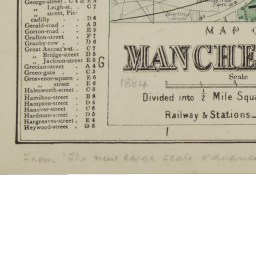 George-street . C 4 E 5
„ Leigh-st. . C 7
„ street, Pic-
cadilly . . D 6
Gerald-road . . A 3
Gorton-road . . E 2
Grafton-street . F 7
Granby-row . . D 6
Great Ancoat's st. . C 7
„ Bridge-street . D 5
„ Jackson-street E 5
Grecian-street . . A 4
Green-gate . . C 5
Grosvenor-square . E 6
„ street . E 6
Halsworth-street . C 3
Hamilton-street . B 8
Hampson-street . D 4
Hanover-street . C 6
Hardman-street . D 5
Hargreaves-street . E 4
Heywood-street . G 5
G
MAP O
MANCHE
1884
Scale
Divided into ½ Mile Squa
Railway & Stations
From "The new large scale Ordnanc